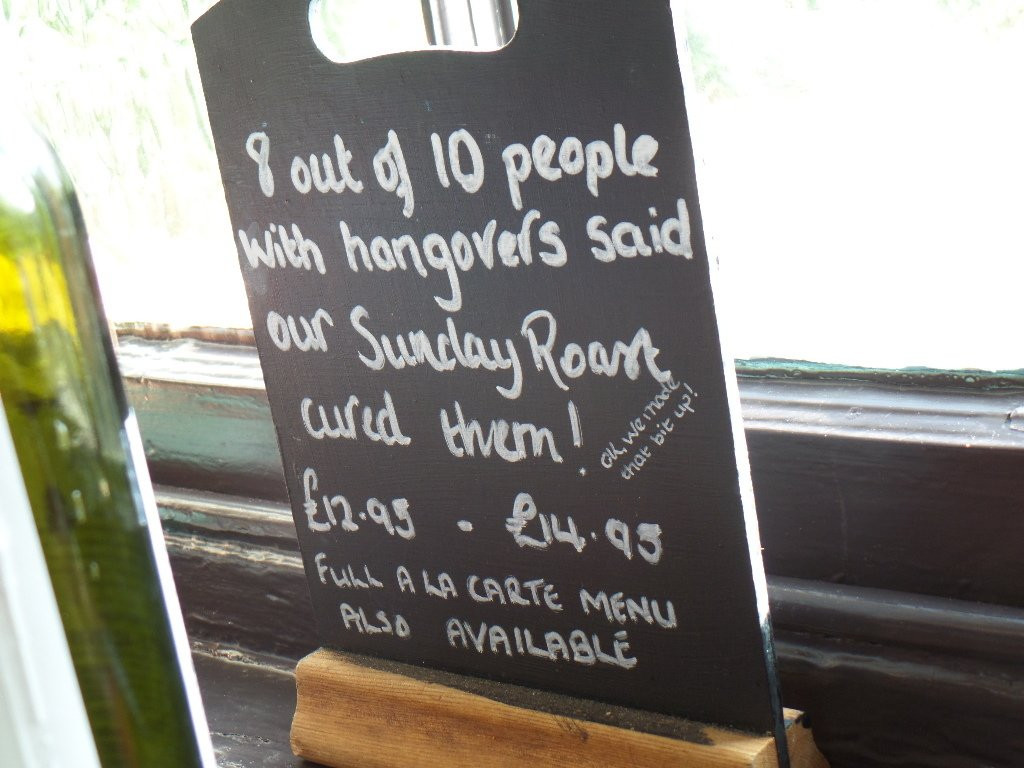 8 out of 10 people
with hangovers said
our Sunday Roast
cured them!
OK, we made
that bit up!
£12.95 - £14.95
FULL A LA CARTE MENU
ALSO AVAILABLE